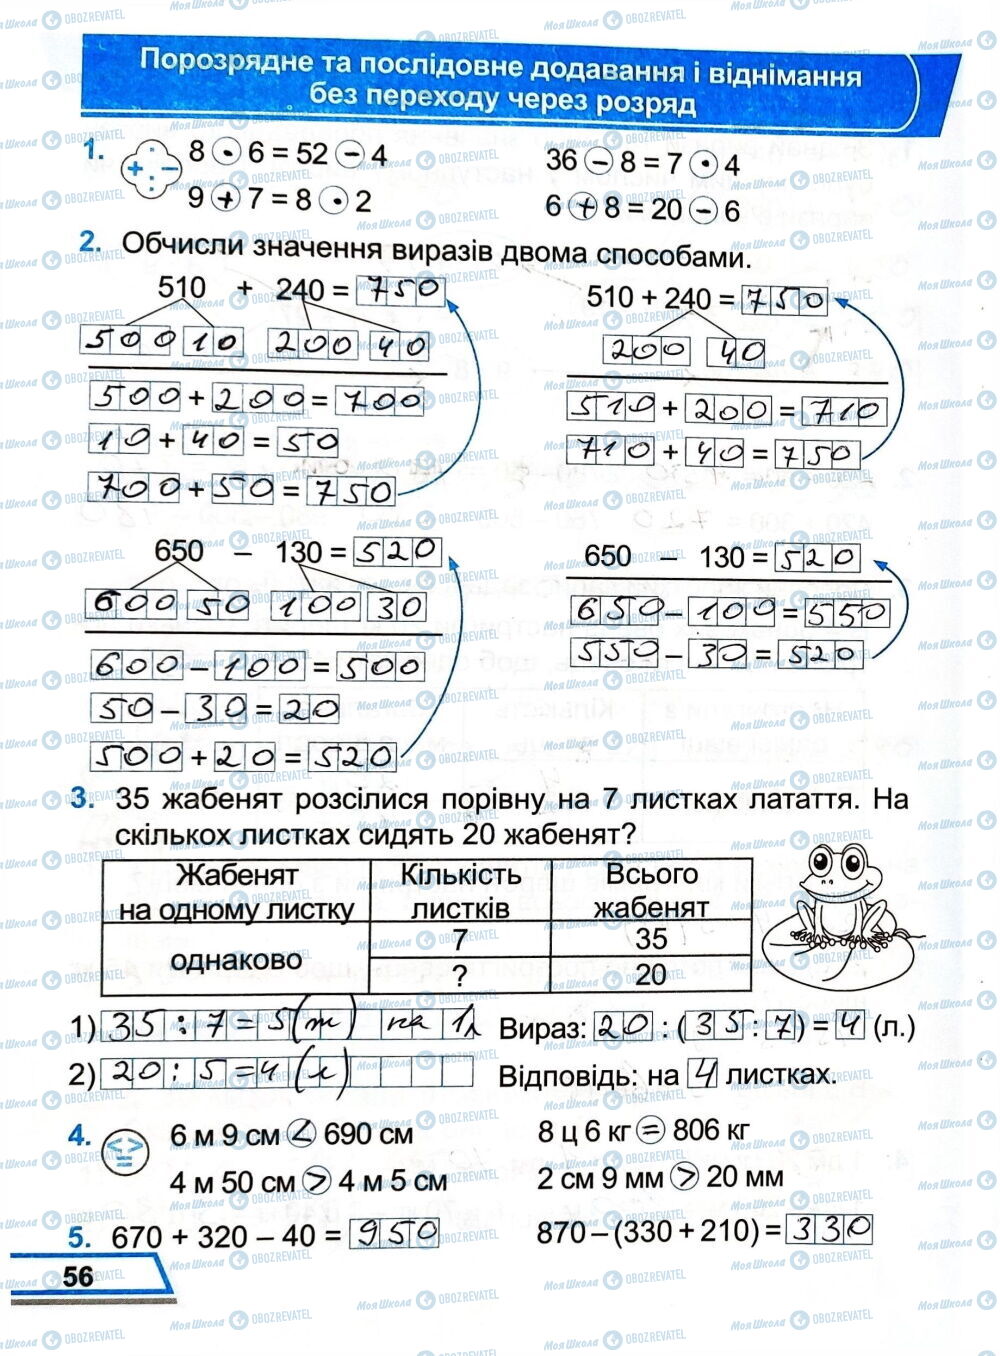 Порозрядне та послідовне додавання і віднімання
без переходу через розряд
1. 8 · 6 = 52 − 4
36 − 8 = 7 · 4
9 + 7 = 8 · 2
6 + 8 = 20 − 6
2. Обчисли значення виразів двома способами.
510 + 240 = 750
500 10 200 40
500 + 200 = 700
10 + 40 = 50
700 + 50 = 750
510 + 240 = 750
200 40
510 + 200 = 710
710 + 40 = 750
650 − 130 = 520
600 50 100 30
600 − 100 = 500
50 − 30 = 20
500 + 20 = 520
650 − 130 = 520
650 − 100 = 550
550 − 30 = 520
3. 35 жабенят розсілися порівну на 7 листках латаття. На
скількох листках сидять 20 жабенят?
Жабенят на одному листку
Кількість листків
Всього жабенят
однаково
7 35
? 20
1) 35 : 7 = 5 (ж) на 1л
2) 20 : 5 = 4 (л)
Вираз: 20 : (35 : 7) = 4 (л.)
Відповідь: на 4 листках.
4. 6 м 9 см < 690 см
8 ц 6 кг = 806 кг
4 м 50 см > 4 м 5 см
2 см 9 мм > 20 мм
5. 670 + 320 − 40 = 950
870 − (330 + 210) = 330
56
МояШкола OBOZREVATEL